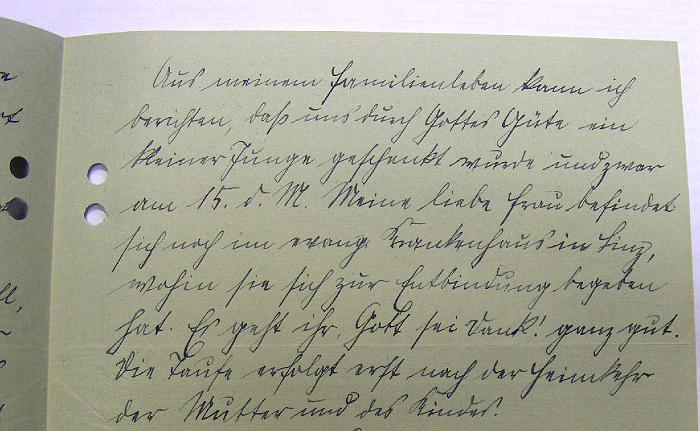 Aus meinem Familienleben kann ich
berichten, daß uns durch Gottes Güte ein
kleiner Junge geschenkt wurde und zwar
am 15. d. M. Meine liebe Frau befindet
sich noch im evang. Krankenhaus in Linz,
wohin sie sich zur Entbindung begeben
hat. Es geht ihr, Gott sei Dank! ganz gut.
Die Taufe erfolgt erst nach der Heimkehr
der Mutter und des Kindes.